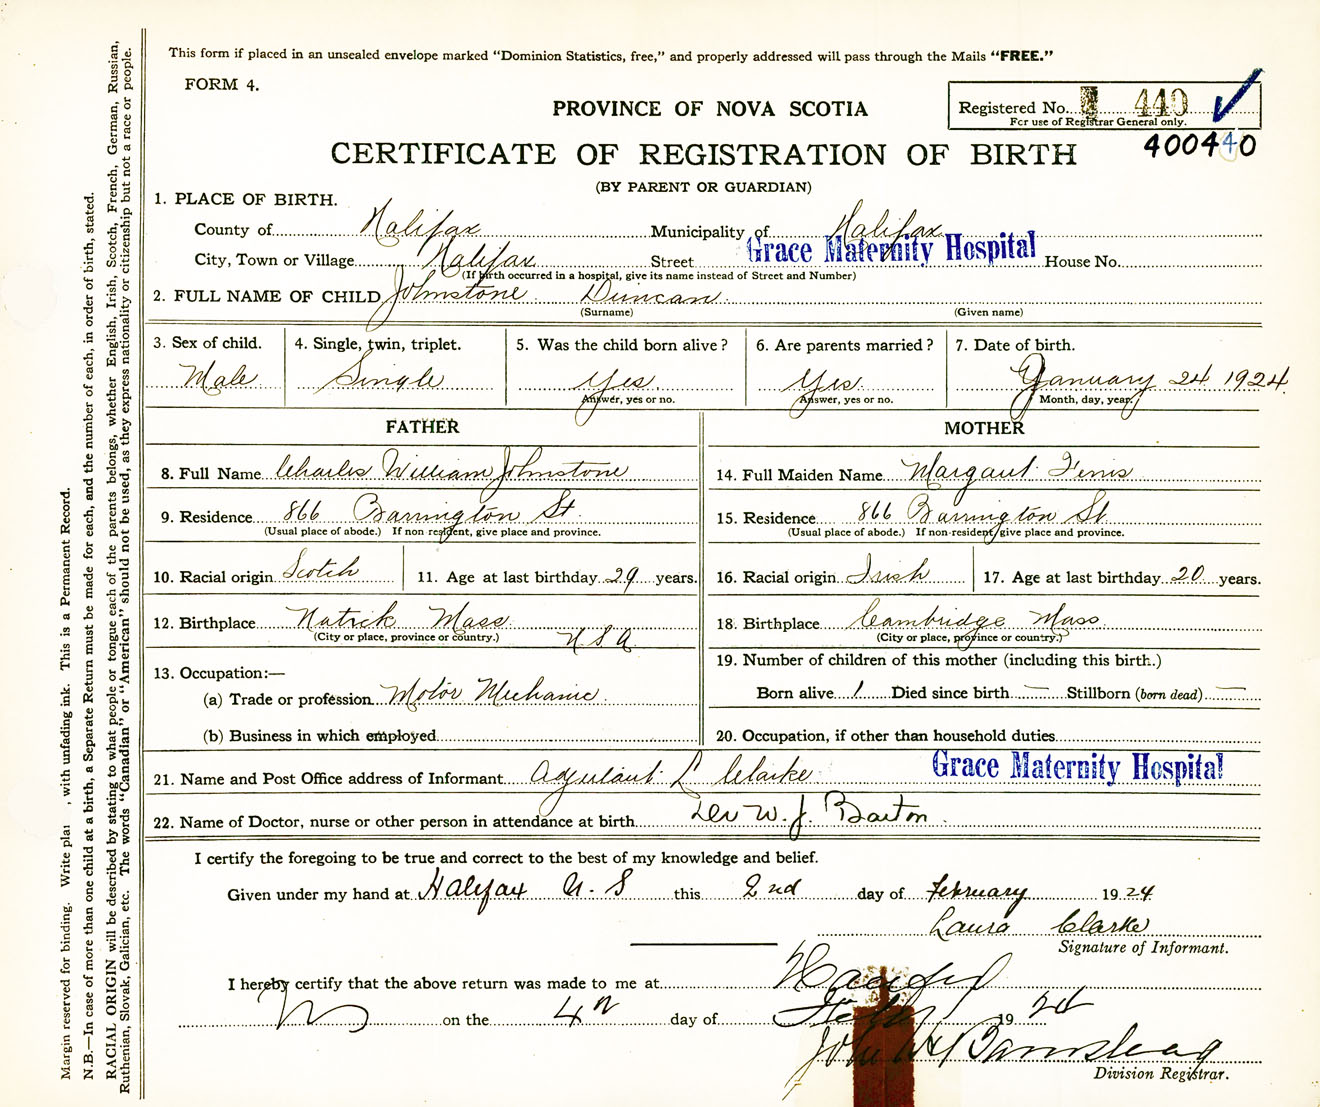 This form if placed in an unsealed envelope marked "Dominion Statistics, free," and properly addressed will pass through the Mails "FREE."
FORM 4.
PROVINCE OF NOVA SCOTIA
Registered No. 440
For use of Registrar General only.
400440
CERTIFICATE OF REGISTRATION OF BIRTH
(BY PARENT OR GUARDIAN)
1. PLACE OF BIRTH.
County of Halifax Municipality of Halifax
City, Town or Village Halifax Street Grace Maternity Hospital House No.
(If birth occurred in a hospital, give its name instead of Street and Number)
2. FULL NAME OF CHILD Johnstone Duncan
(Surname) (Given name)
3. Sex of child. 4. Single, twin, triplet. 5. Was the child born alive? 6. Are parents married? 7. Date of birth.
Male Single Yes Yes January 24 1924
Answer, yes or no. Answer, yes or no. Month, day, year.
FATHER MOTHER
8. Full Name Charles William Johnstone 14. Full Maiden Name Margaret
9. Residence 866 Barrington St. 15. Residence 866 Barrington St
(Usual place of abode.) If non-resident, give place and province. (Usual place of abode.) If non-resident give place and province.
10. Racial origin Scotch 11. Age at last birthday 29 years. 16. Racial origin Irish 17. Age at last birthday 20 years.
12. Birthplace Natick Mass 18. Birthplace Cambridge Mass
(City or place, province or country.) U S A (City or place, province or country.)
19. Number of children of this mother (including this birth.)
13. Occupation:—
(a) Trade or profession Motor Mechanic Born alive 1 Died since birth — Stillborn (born dead) —
(b) Business in which employed 20. Occupation, if other than household duties
21. Name and Post Office address of Informant Adjutant L Clarke Grace Maternity Hospital
22. Name of Doctor, nurse or other person in attendance at birth W. J. Barton
I certify the foregoing to be true and correct to the best of my knowledge and belief.
Given under my hand at Halifax N. S this 2nd day of February 1924
Laura Clarke
Signature of Informant.
I hereby certify that the above return was made to me at Halifax
N S on the 4th day of 1924
John
Division Registrar.
Margin reserved for binding. Write , with unfading ink. This is a Permanent Record.
N.B.—In case of more than one child at a birth, a Separate Return must be made for each, and the number of each, in order of birth, stated.
RACIAL ORIGIN will be described by stating to what people or tongue each of the parents belongs, whether English, Irish, Scotch, French, German, Russian,
Ruthenian, Slovak, Galician, etc. The words "Canadian" or "American" should not be used, as they express nationality or citizenship but not a race or people.